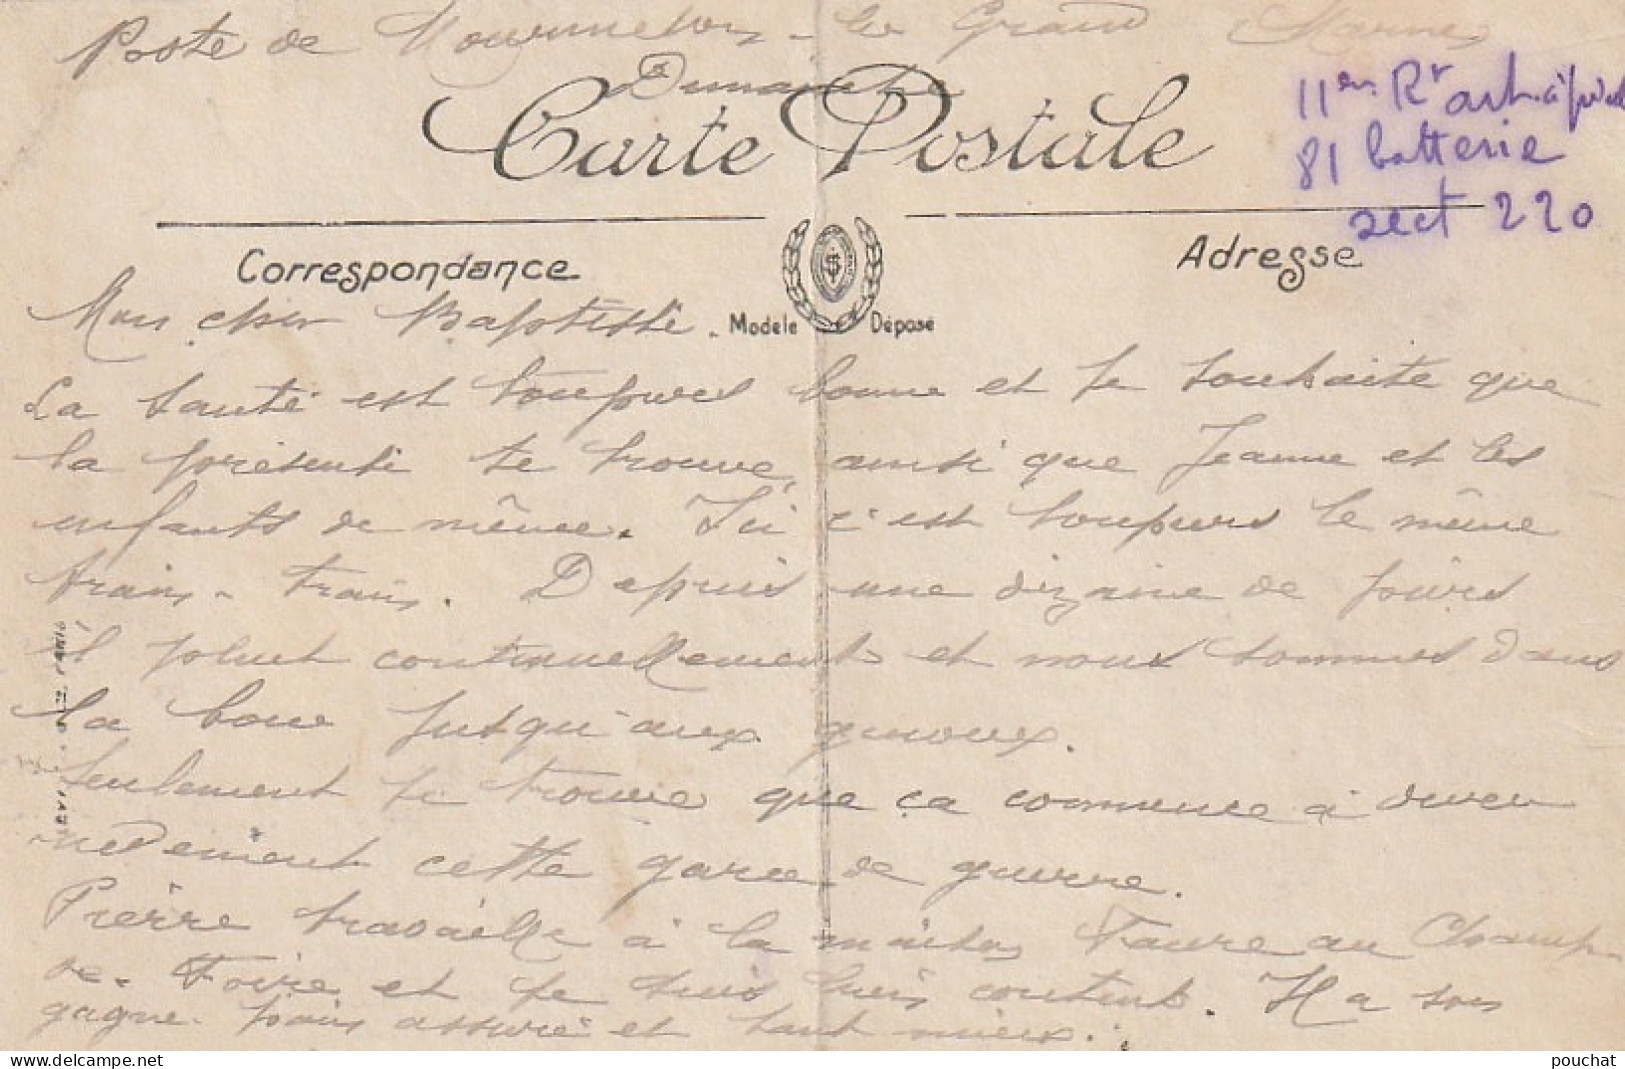 Poste de Mourmelon-le Grand Marne
Dimanche
11em Rt art. à pied
81 batterie
sect 220
Carte Postale
Correspondance
Adresse
Modèle Déposé
Mon cher Baptiste.
La santé est toujours bonne et je souhaite que
la présente te trouve, ainsi que Jeanne et les
enfants de même. Ici c'est toujours le même
train-train. Depuis une dizaine de jours
il pleut continuellement et nous sommes dans
la boue jusqu'aux genoux.
Seulement je trouve que ça commence à durer
cette garce de guerre.
Pierre travaille à la maison Faure au Champ-
de-Foire et je suis bien content. Il a son
gagne-pain assuré et tant mieux.
PARIS
pouchat
delcampe.net